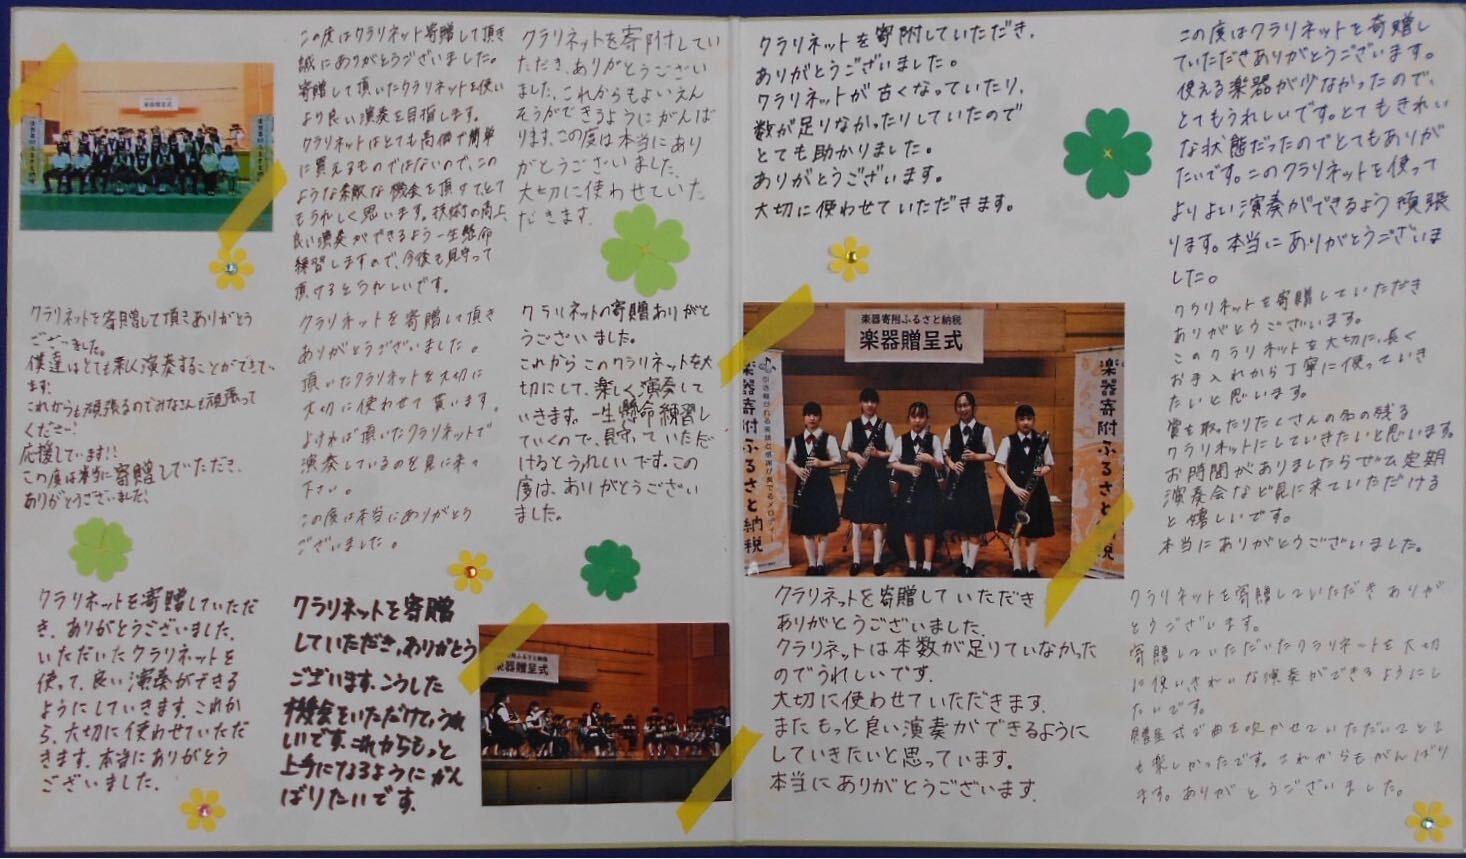 楽器贈呈式
この度はクラリネット寄贈して頂き
誠にありがとうございました。
寄贈して頂いたクラリネットを使い
より良い演奏を目指します。
クラリネットはとても高価で簡単
に買えるものではないので、この
ような素敵な機会を頂けて、とて
もうれしく思います。技術の向上、
良い演奏ができるよう一生懸命
練習しますので、今後も見守って
頂けるとうれしいです。
クラリネットを寄附してい
ただき、ありがとうござい
ました。これからもよいえん
そうができるようにがんば
ります。この度は本当にあり
がとうございました。
大切に使わせていた
だきます。
クラリネットを寄贈して頂きありがとう
ございました。
僕達はとても楽しく演奏することができてい
ます。
これからも頑張るのでみなさんも頑張って
ください!
応援しています!!
この度は本当に寄贈していただき、
ありがとうございました。
クラリネットを寄贈して頂き
ありがとうございました。
頂いたクラリネットを大切に
大切に使わせて貰います。
よければ頂いたクラリネットで
演奏しているのを見に来て
下さい。
この度は本当にありがとう
ございました。
クラリネットの寄贈ありがと
うございました。
これからこのクラリネットを大
切にして、楽しく演奏して
いきます。一生懸命練習し
ていくので、見守っていただ
けるとうれしいです。この
度は、ありがとうござい
ました。
クラリネットを寄贈していただ
き、ありがとうございました。
いただいたクラリネットを
使って、良い演奏ができる
ようにしていきます。これか
ら、大切に使わせていただ
きます。本当にありがとう
ございました。
クラリネットを寄贈
していただき、ありがとう
ございます。こうした
機会をいただけて、うれ
しいです。これからもっと
上手になるようにがん
ばりたいです。
楽器贈呈式
クラリネットを寄附していただき、
ありがとうございました。
クラリネットが古くなっていたり、
数が足りなかったりしていたので
とても助かりました。
ありがとうございます。
大切に使わせていただきます。
この度はクラリネットを寄贈し
ていただきありがとうございます。
使える楽器が少なかったので、
とてもうれしいです。とてもきれい
な状態だったのでとてもありが
たいです。このクラリネットを使って
よりよい演奏ができるよう頑張
ります。本当にありがとうございま
した。
楽器寄附ふるさと納税
楽器贈呈式
楽器寄附ふるさと納税
楽器寄附ふるさと納税
クラリネットを寄贈していただき
ありがとうございます。
このクラリネットを大切に、長く
お手入れから丁寧に使っていき
たいと思います。
賞を取ったりたくさんの名の残る
クラリネットにしていきたいと思います。
お時間がありましたらぜひ定期
演奏会など見に来ていただける
と嬉しいです。
本当にありがとうございました。
クラリネットを寄贈していただき
ありがとうございました。
クラリネットは本数が足りていなかった
のでうれしいです。
大切に使わせていただきます。
またもっと良い演奏ができるように
していきたいと思っています。
本当にありがとうございます。
クラリネットを寄贈していただきありが
とうございます。
寄贈していただいたクラリネットを大切
に使いきれいな演奏ができるようにし
たいです。
贈呈式で曲を吹かせていただいてとて
も楽しかったです。これからもがんばり
ます。ありがとうございました。